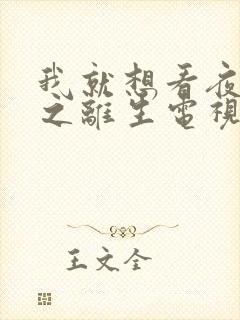 我就想看夜
之離生電視
王文全